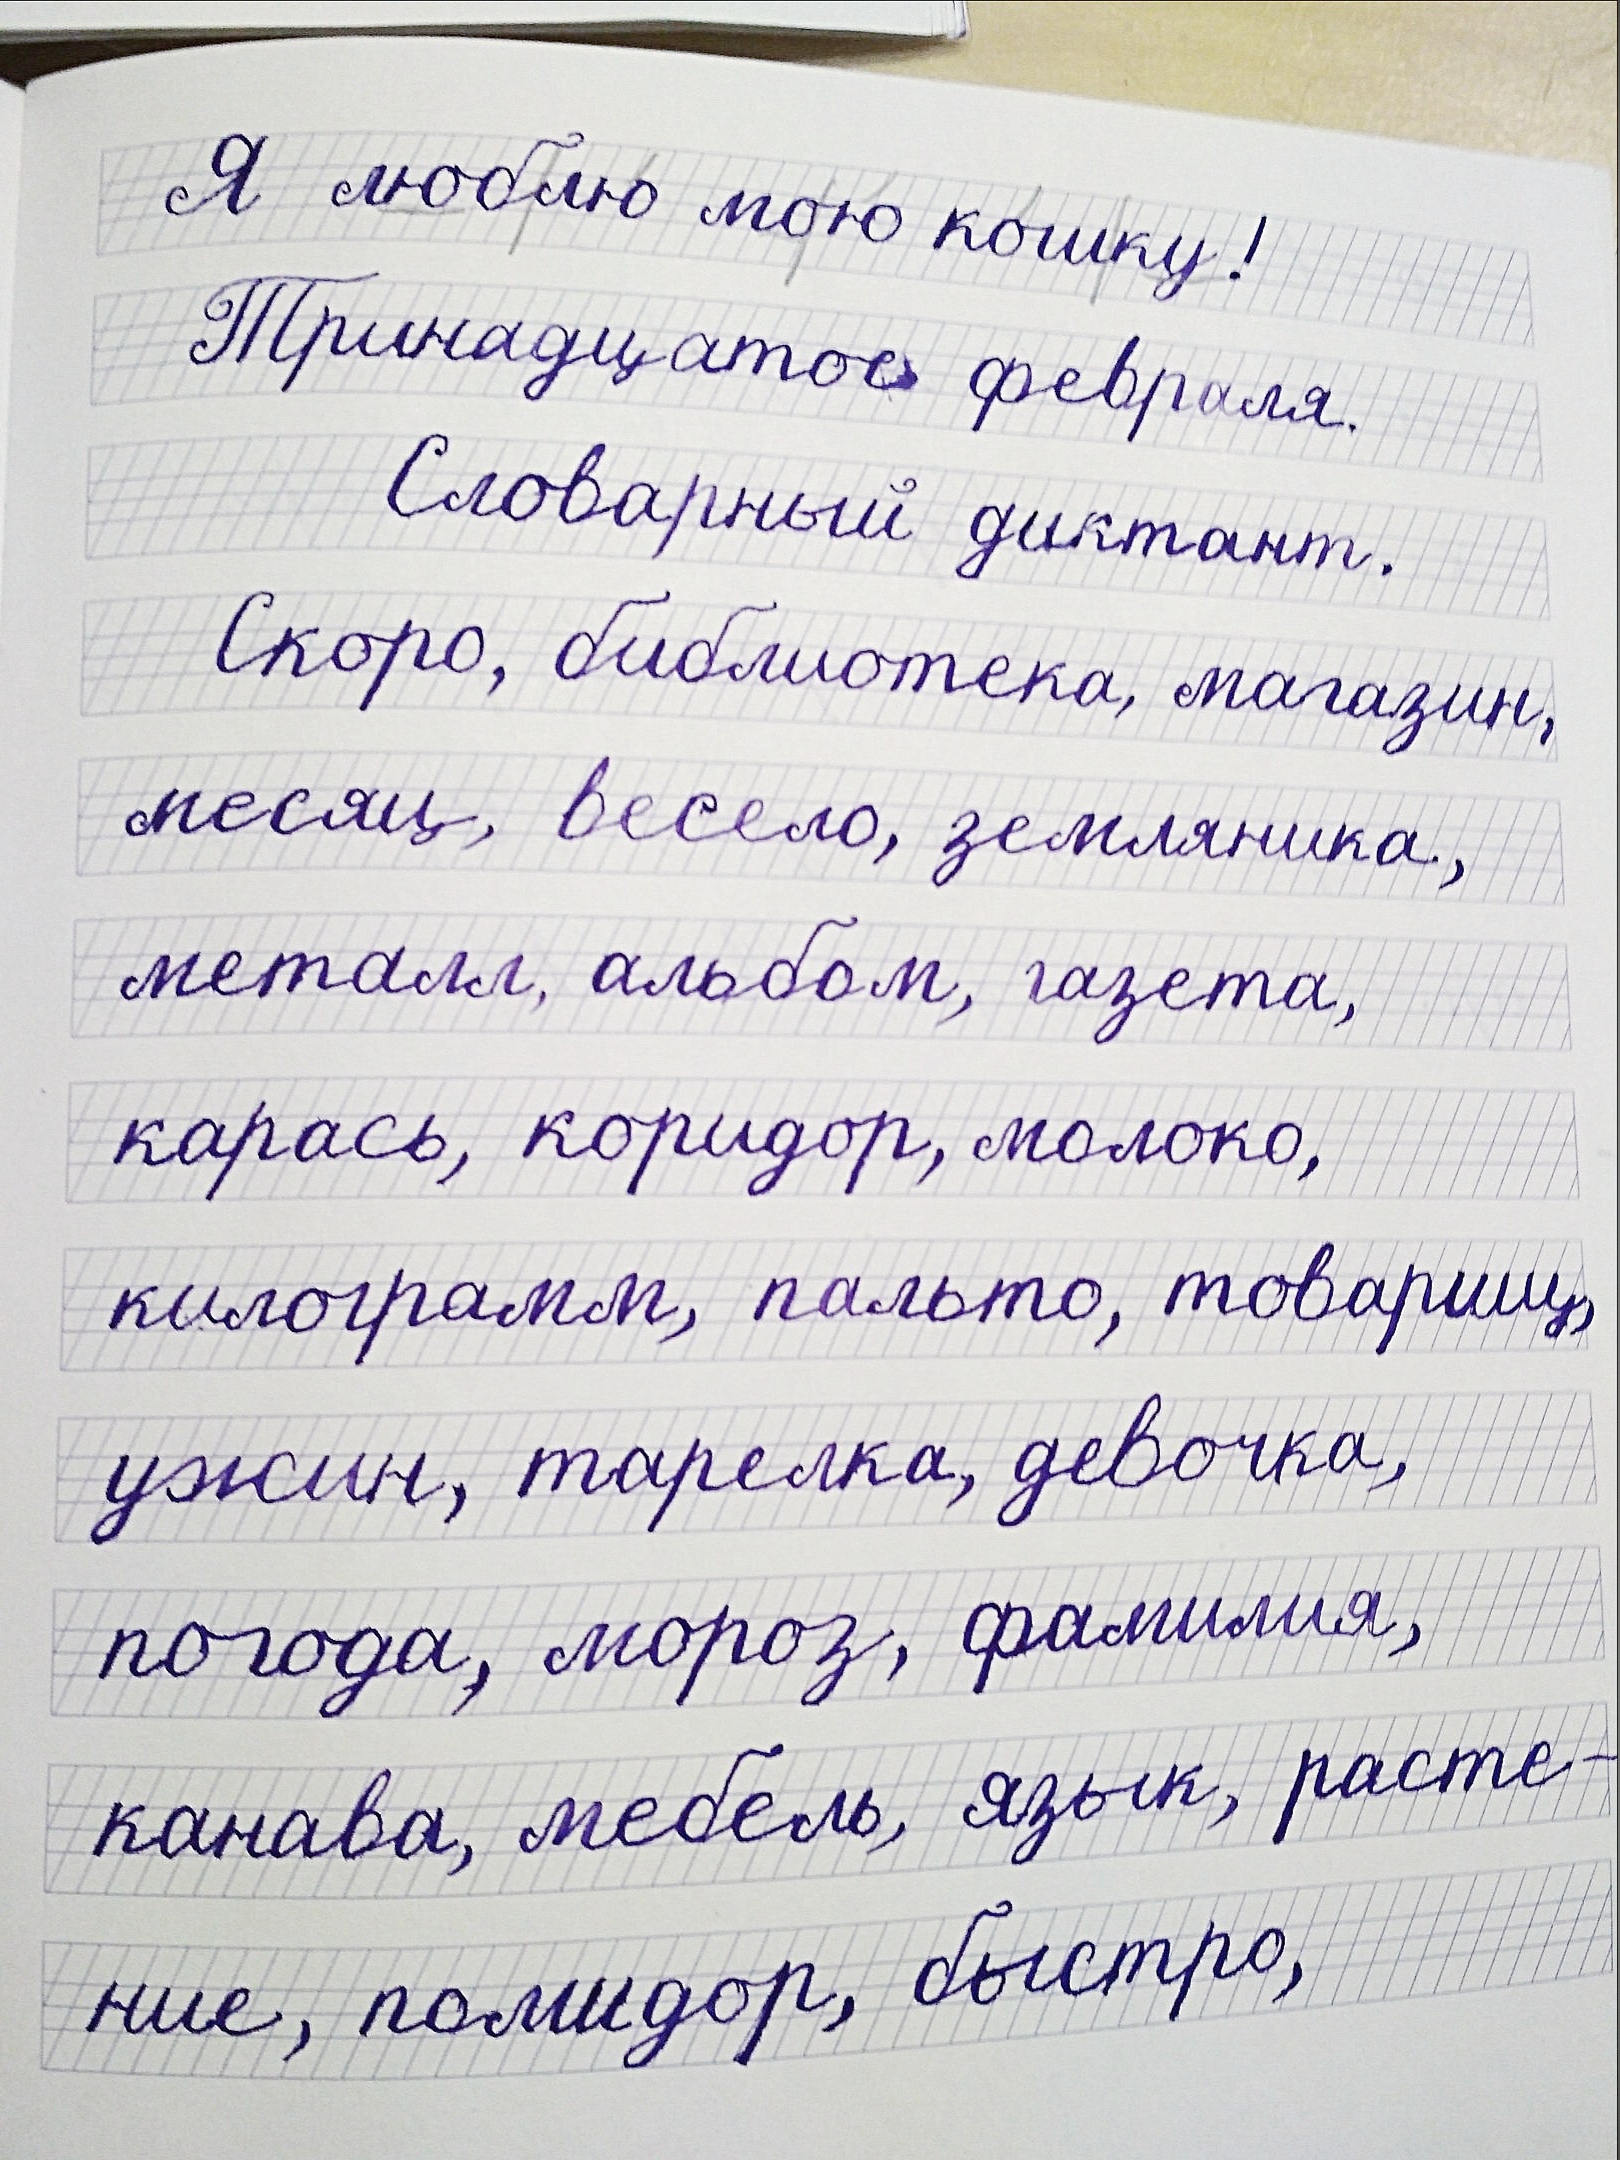 Я люблю мою кошку!
Тринадцатое февраля.
Словарный диктант.
Скоро, библиотека, магазин,
месяц, весело, земляника,
металл, альбом, газета,
карась, коридор, молоко,
килограмм, пальто, товарищ,
ужин, тарелка, девочка,
погода, мороз, фамилия,
канава, мебель, язык, расте-
ние, помидор, быстро,